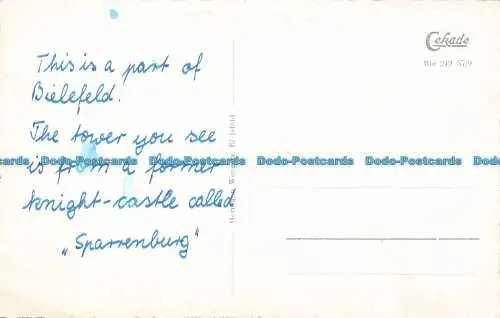 This is a part of
Bielefeld.
The tower you see
is from a former
knight-castle called
„Sparrenburg"
Cekade
Bie 249 57/9
Dodo-Postcards Dodo-Postcards Dodo-Postcards Dodo-Postcards Dodo-Postcards